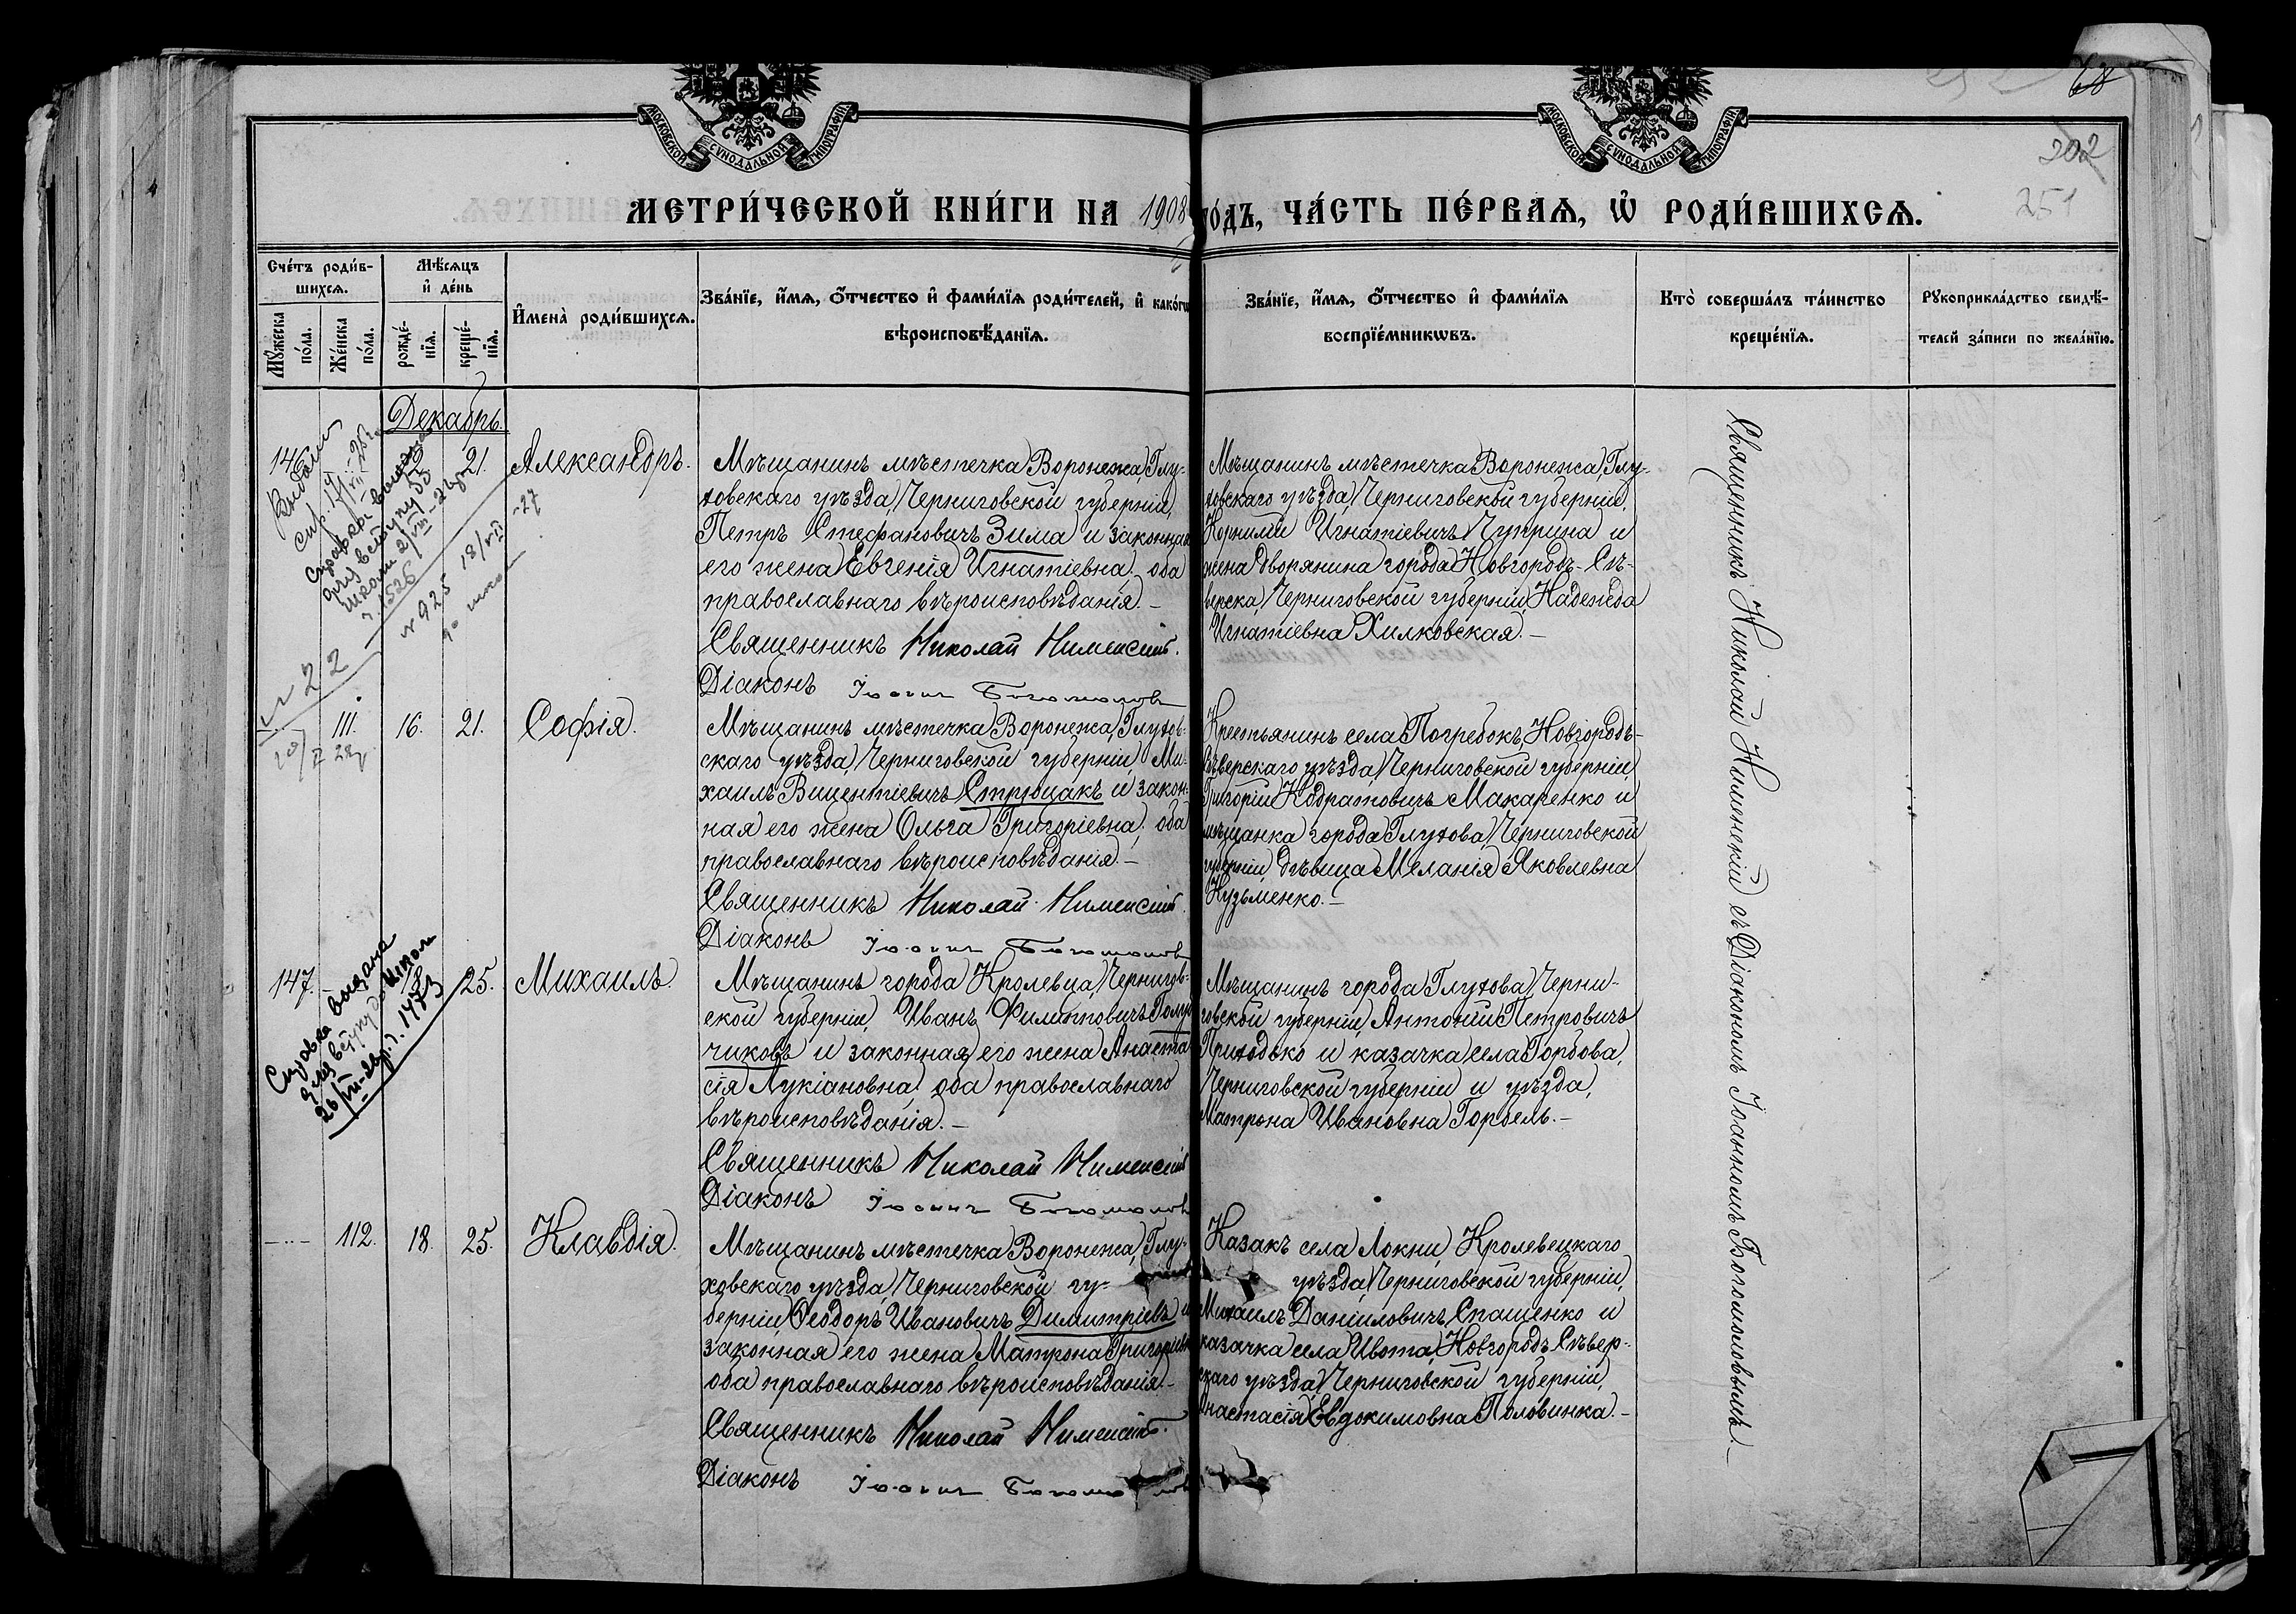 68
202
251
МОСКОВСКОЙ СѴНОДАЛЬНОЙ ТИПОГРАФІИ
МОСКОВСКОЙ СѴНОДАЛЬНОЙ ТИПОГРАФІИ
МЕТРИ́ЧЕСКОЙ КНИ́ГИ НА 1908 го́дъ, ЧА́СТЬ ПЕ́РВАЯ, Ѡ҆ РОДИ́ВШИХСЯ.
Счетъ роди́в-
шихся.
Мѣ́сяцъ
и҆ де́нь
И҆мена̀ роди́вшихся.
Зва́нїе, и҆́мя, ѻ҆́тчество и҆ фами́лїя роди́телей, и҆ како́гѡ
вѣроисповѣ́данїя.
Зва́нїе, и҆́мя, ѻ҆́тчество и҆ фами́лїя
воспрїе́мникѡвъ.
Кто̀ соверша́лъ та́инство
креще́нїя.
Рꙋкоприкла́дство свидѣ́-
телей за́писи по жела́нїю.
Мꙋ́жеска
по́ла.
Же́нска
по́ла.
рожде́-
нїя.
креще́-
нїя.
Декабрь.
146
21.
Александръ.
Мѣщанинъ мѣстечка Воронежа, Глу-
ховскаго уѣзда, Черниговской губерніи,
Петръ Стефановичъ Зима и законная
его жена Евгенія Игнатіевна, оба
православнаго вѣроисповѣданія. —
Священникъ Николай Нименскій.
Діаконъ Іоаннъ Богомоловъ
Мѣщанинъ мѣстечка Воронежа, Глу-
ховскаго уѣзда, Черниговской губерніи,
Корнилій Игнатіевичъ Чуприна и
жена дворянина города Новгородъ-Сѣ-
верска, Черниговской губерніи, Надежда
Игнатіевна Хилковская. —
Священникъ Николай Нименскій съ Діакономъ Іоанномъ Богомоловымъ. —
Выдана
спр. 
Справка выдана
для вступу до
школи
№ 1526
№ 925 18/VII -27
№ 22
111.
16.
21.
Софія.
Мѣщанинъ мѣстечка Воронежа, Глухов-
скаго уѣзда, Черниговской губерніи, Ми-
хаилъ Викентіевичъ Стрющакъ и закон-
ная его жена Ольга Григоріевна, оба
православнаго вѣроисповѣданія. —
Священникъ Николай Нименскій.
Діаконъ Іоаннъ Богомоловъ
Крестьянинъ села Погребокъ, Новгородъ-
Сѣверскаго уѣзда, Черниговской губерніи,
Григорій Кодратовичъ Макаренко и
мѣщанка города Глухова, Черниговской
губерніи, дѣвица Меланія Яковлевна
Кузьменко. —
147.
25.
Михаилъ.
Мѣщанинъ города Кролевца, Чернигов-
ской губерніи, Иванъ Филипповичъ Голуб
чиковъ и законная его жена Анаста-
сія Лукіановна, оба православнаго
вѣроисповѣданія. —
Священникъ Николай Нименскій
Діаконъ Іоаннъ Богомоловъ
Мѣщанинъ города Глухова, Черни-
говской губерніи, Антоній Петровичъ
Приходько и казачка села Горбова,
Черниговской губерніи и уѣзда,
Матрона Ивановна Горбель. —
Справка выдана
для вступу до школ
26/VII-28р. ч. 1473
112.
18.
25.
Клавдія.
Мѣщанинъ мѣстечка Воронежа, Глу-
ховскаго уѣзда, Черниговской гу-
берніи, Ѳеодоръ Ивановичъ Димитріевъ и
законная его жена Матрона Григоріевна
оба православнаго вѣроисповѣданія. —
Священникъ Николай Нименскій.
Діаконъ Іоаннъ Богомоловъ
Казакъ села Локни, Кролевецкаго
уѣзда, Черниговской губерніи,
Михаилъ Даніиловичъ Спащенко и
казачка села Ивота, Новгородъ-Сѣвер-
скаго уѣзда, Черниговской губерніи,
Анастасія Евдокимовна Половинка. —